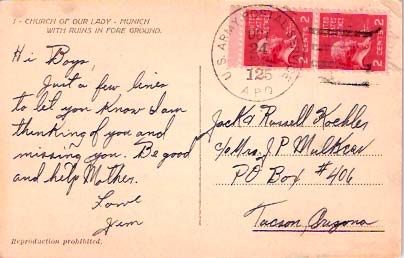 1 - CHURCH OF OUR LADY - MUNICH
WITH RUINS IN FORE GROUND.
Hi Boys,
Just a few lines
to let you know I am
thinking of you and
missing you. Be good
and help Mother.
Love
Jim
Reproduction prohibited.
U.S. ARMY POSTAL
24
125
A.P.O.
2 CENTS 2
2 CENTS 2
Jack & Russell
c/o Mrs. J.P.
PO Box #406
Tucson, Arizona